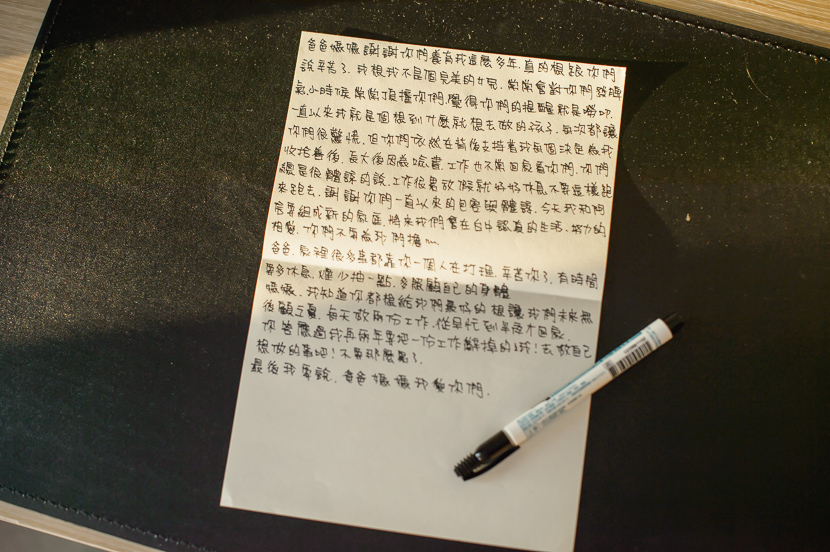 爸爸媽媽謝謝你們養育我這麼多年.真的想跟你們
說辛苦了.我想我不是個完美的女兒.常常會對你們發脾
氣.小時候常常頂撞你們.覺得你們的提醒就是嘮叨.
一直以來我就是個想到什麼就想去做的孩子.每次都讓
你們很驚慌.但你們依然在背後支持著我每個決定為我
收拾善後.長大後因為唸書.工作也不常回家看你們.你們
總是很體諒的說.工作很累放假就好好休息.不要這樣跑
來跑去.謝謝你們一直以來的包容與體諒.今天我和
要組成新的家庭.將來我們會在台中認真的生活.努力的
相愛.你們不要為我們擔心
爸爸.家裡很多事都靠你一個人在打理.辛苦你了.有時間
要多休息.煙少抽一點.多照顧自己的身體
媽媽.我知道你都想給我們最好的想讓我們未來無
後顧之憂.每天做兩份工作.從早忙到半夜才回家.
你答應過我再兩年要把一份工作辭掉的哦!去做自己
想做的事吧!不要那麼累了.
最後我要說.爸爸媽媽我愛你們.